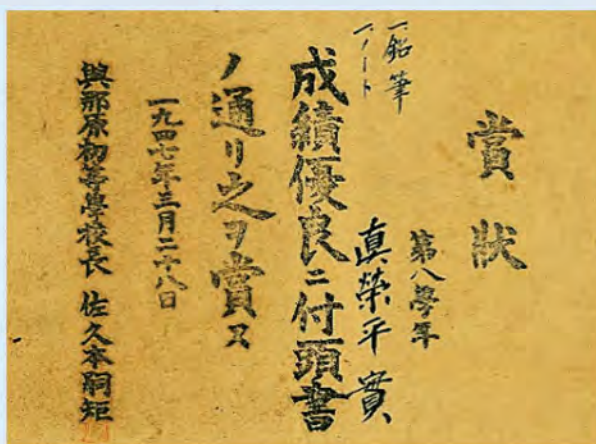 賞狀
第八學年
眞榮平實
一鉛筆
一ノート
成績優良ニ付頭書
ノ通リ之ヲ賞ス
一九四七年三月二十八日
與那原初等學校長 佐久本嗣矩